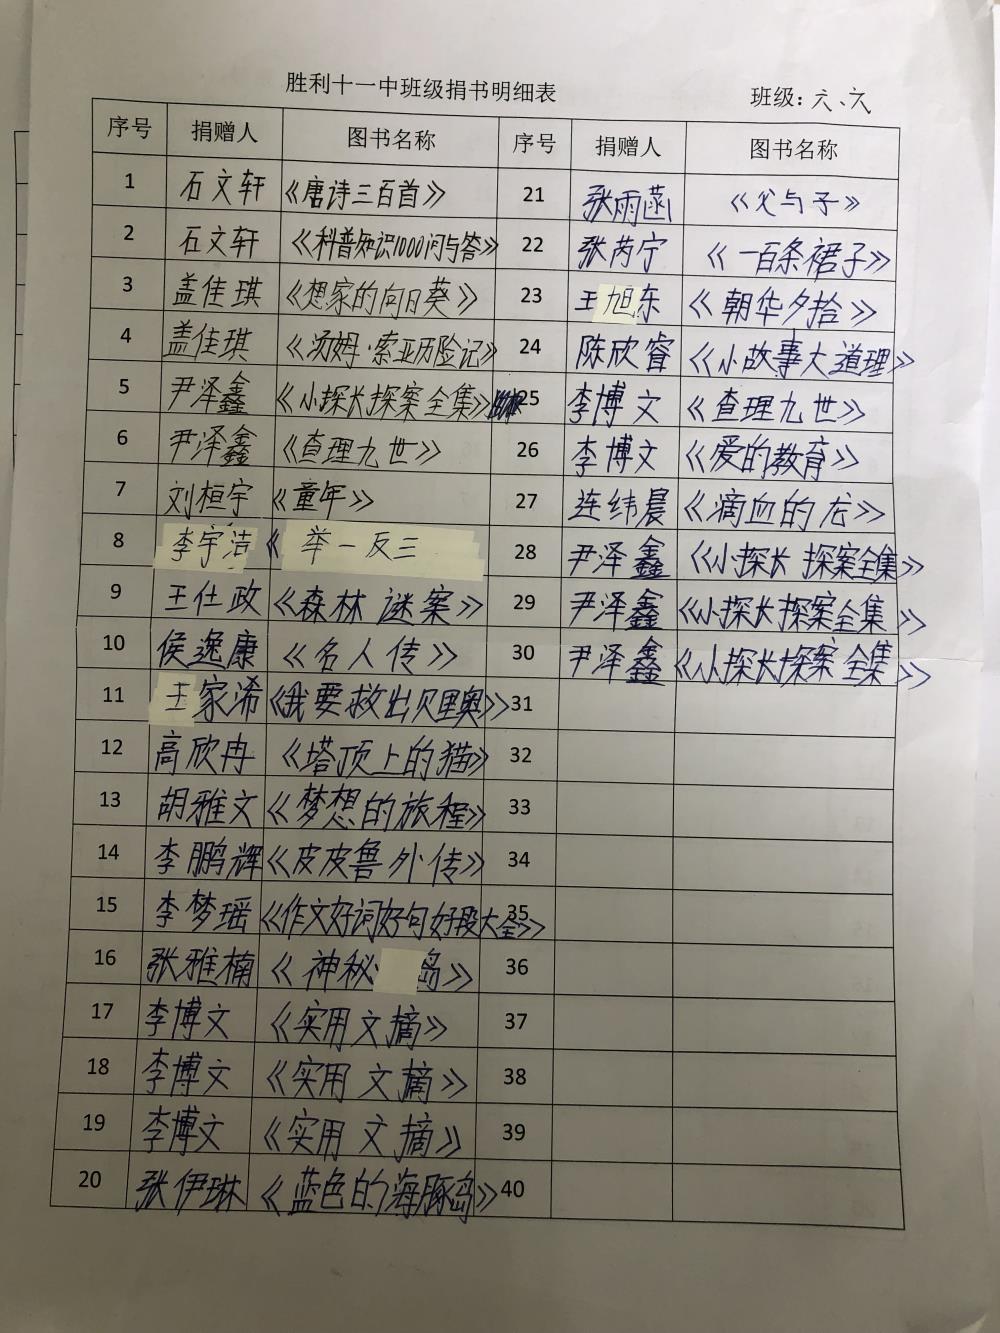 胜利十一中班级捐书明细表 班级：六、六
序号 捐赠人 图书名称 序号 捐赠人 图书名称
1 石文轩 《唐诗三百首》 21 张雨菡 《父与子》
2 石文轩 《科普知识1000问与答》 22 张芮宁 《一百条裙子》
3 盖佳琪 《想家的向日葵》 23 王旭东 《朝华夕拾》
4 盖佳琪 《汤姆·索亚历险记》 24 陈欣睿 《小故事大道理》
5 尹泽鑫 《小探长探案全集》 25 李博文 《查理九世》
6 尹泽鑫 《查理九世》 26 李博文 《爱的教育》
7 刘桓宇 《童年》 27 连纬晨 《滴血的龙》
8 李宇洁 《举一反三 28 尹泽鑫 《小探长探案全集》
9 王仕政 《森林谜案》 29 尹泽鑫 《小探长探案全集》
10 侯逸康 《名人传》 30 尹泽鑫 《小探长探案全集》
11 王家浠 《我要救出贝里奥》 31
12 高欣冉 《塔顶上的猫》 32
13 胡雅文 《梦想的旅程》 33
14 李鹏辉 《皮皮鲁外传》 34
15 李梦瑶 《作文好词好句好段大全》 35
16 张雅楠 《神秘岛》 36
17 李博文 《实用文摘》 37
18 李博文 《实用文摘》 38
19 李博文 《实用文摘》 39
20 张伊琳 《蓝色的海豚岛》 40